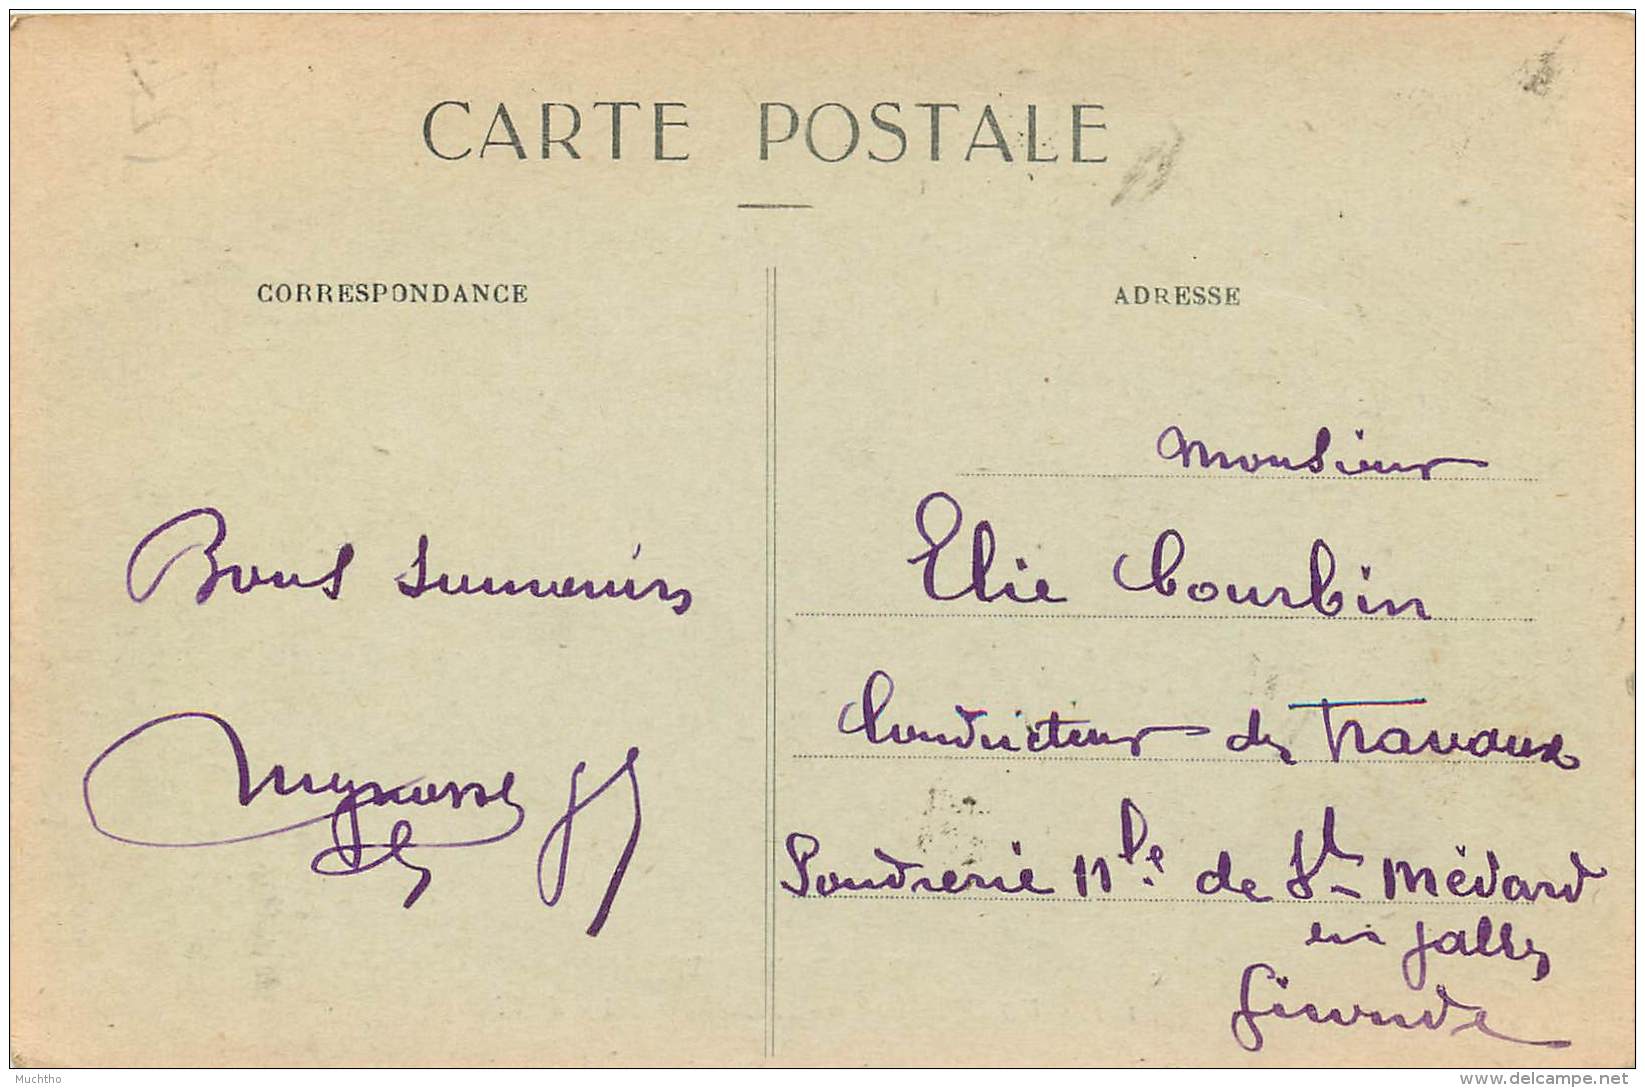 CARTE POSTALE
CORRESPONDANCE
ADRESSE
Bons souvenirs
Monsieur
Elie Courbin
Conducteur des Travaux
Poudrerie Nle. de St Médard
en Jalles
Gironde
Muchtho
delcampe.net